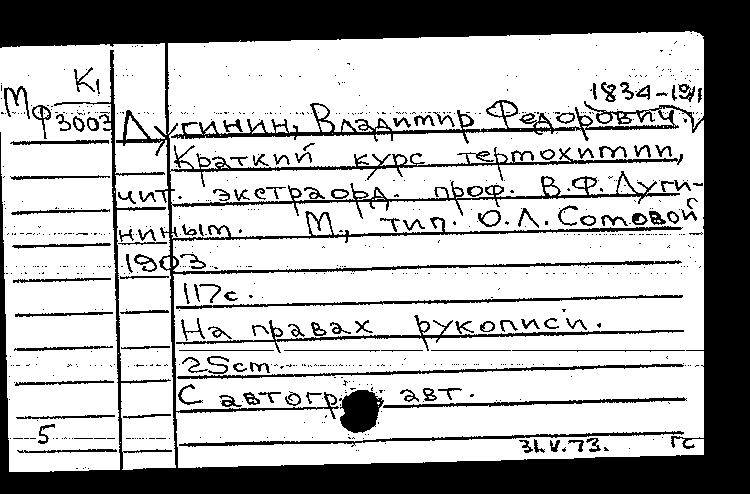 К1
Мф 3003
1834-1911
Лугинин, Владимир Федорович.
Краткий курс термохимии,
чит. экстраорд. проф. В.Ф. Луги-
ниным. М., тип. О.Л. Сомовой
1903.
117с.
На правах рукописи.
25cm
С автогр. авт.
5
31.V.73. ГС